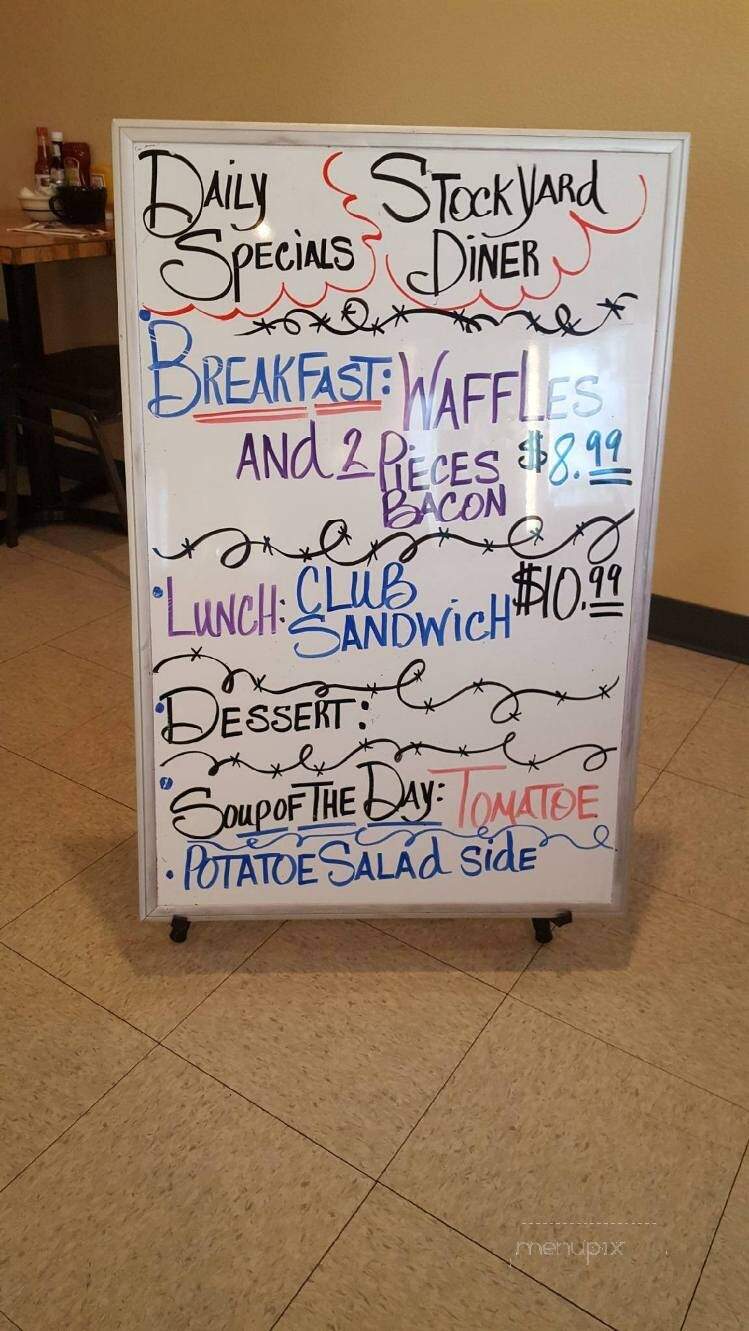 Daily Specials
Stockyard Diner
Breakfast: Waffles
and 2 Pieces $8.99
Bacon
Lunch: Club $10.99
Sandwich
Dessert:
Soup of the Day: Tomatoe
Potatoe Salad side
menupix